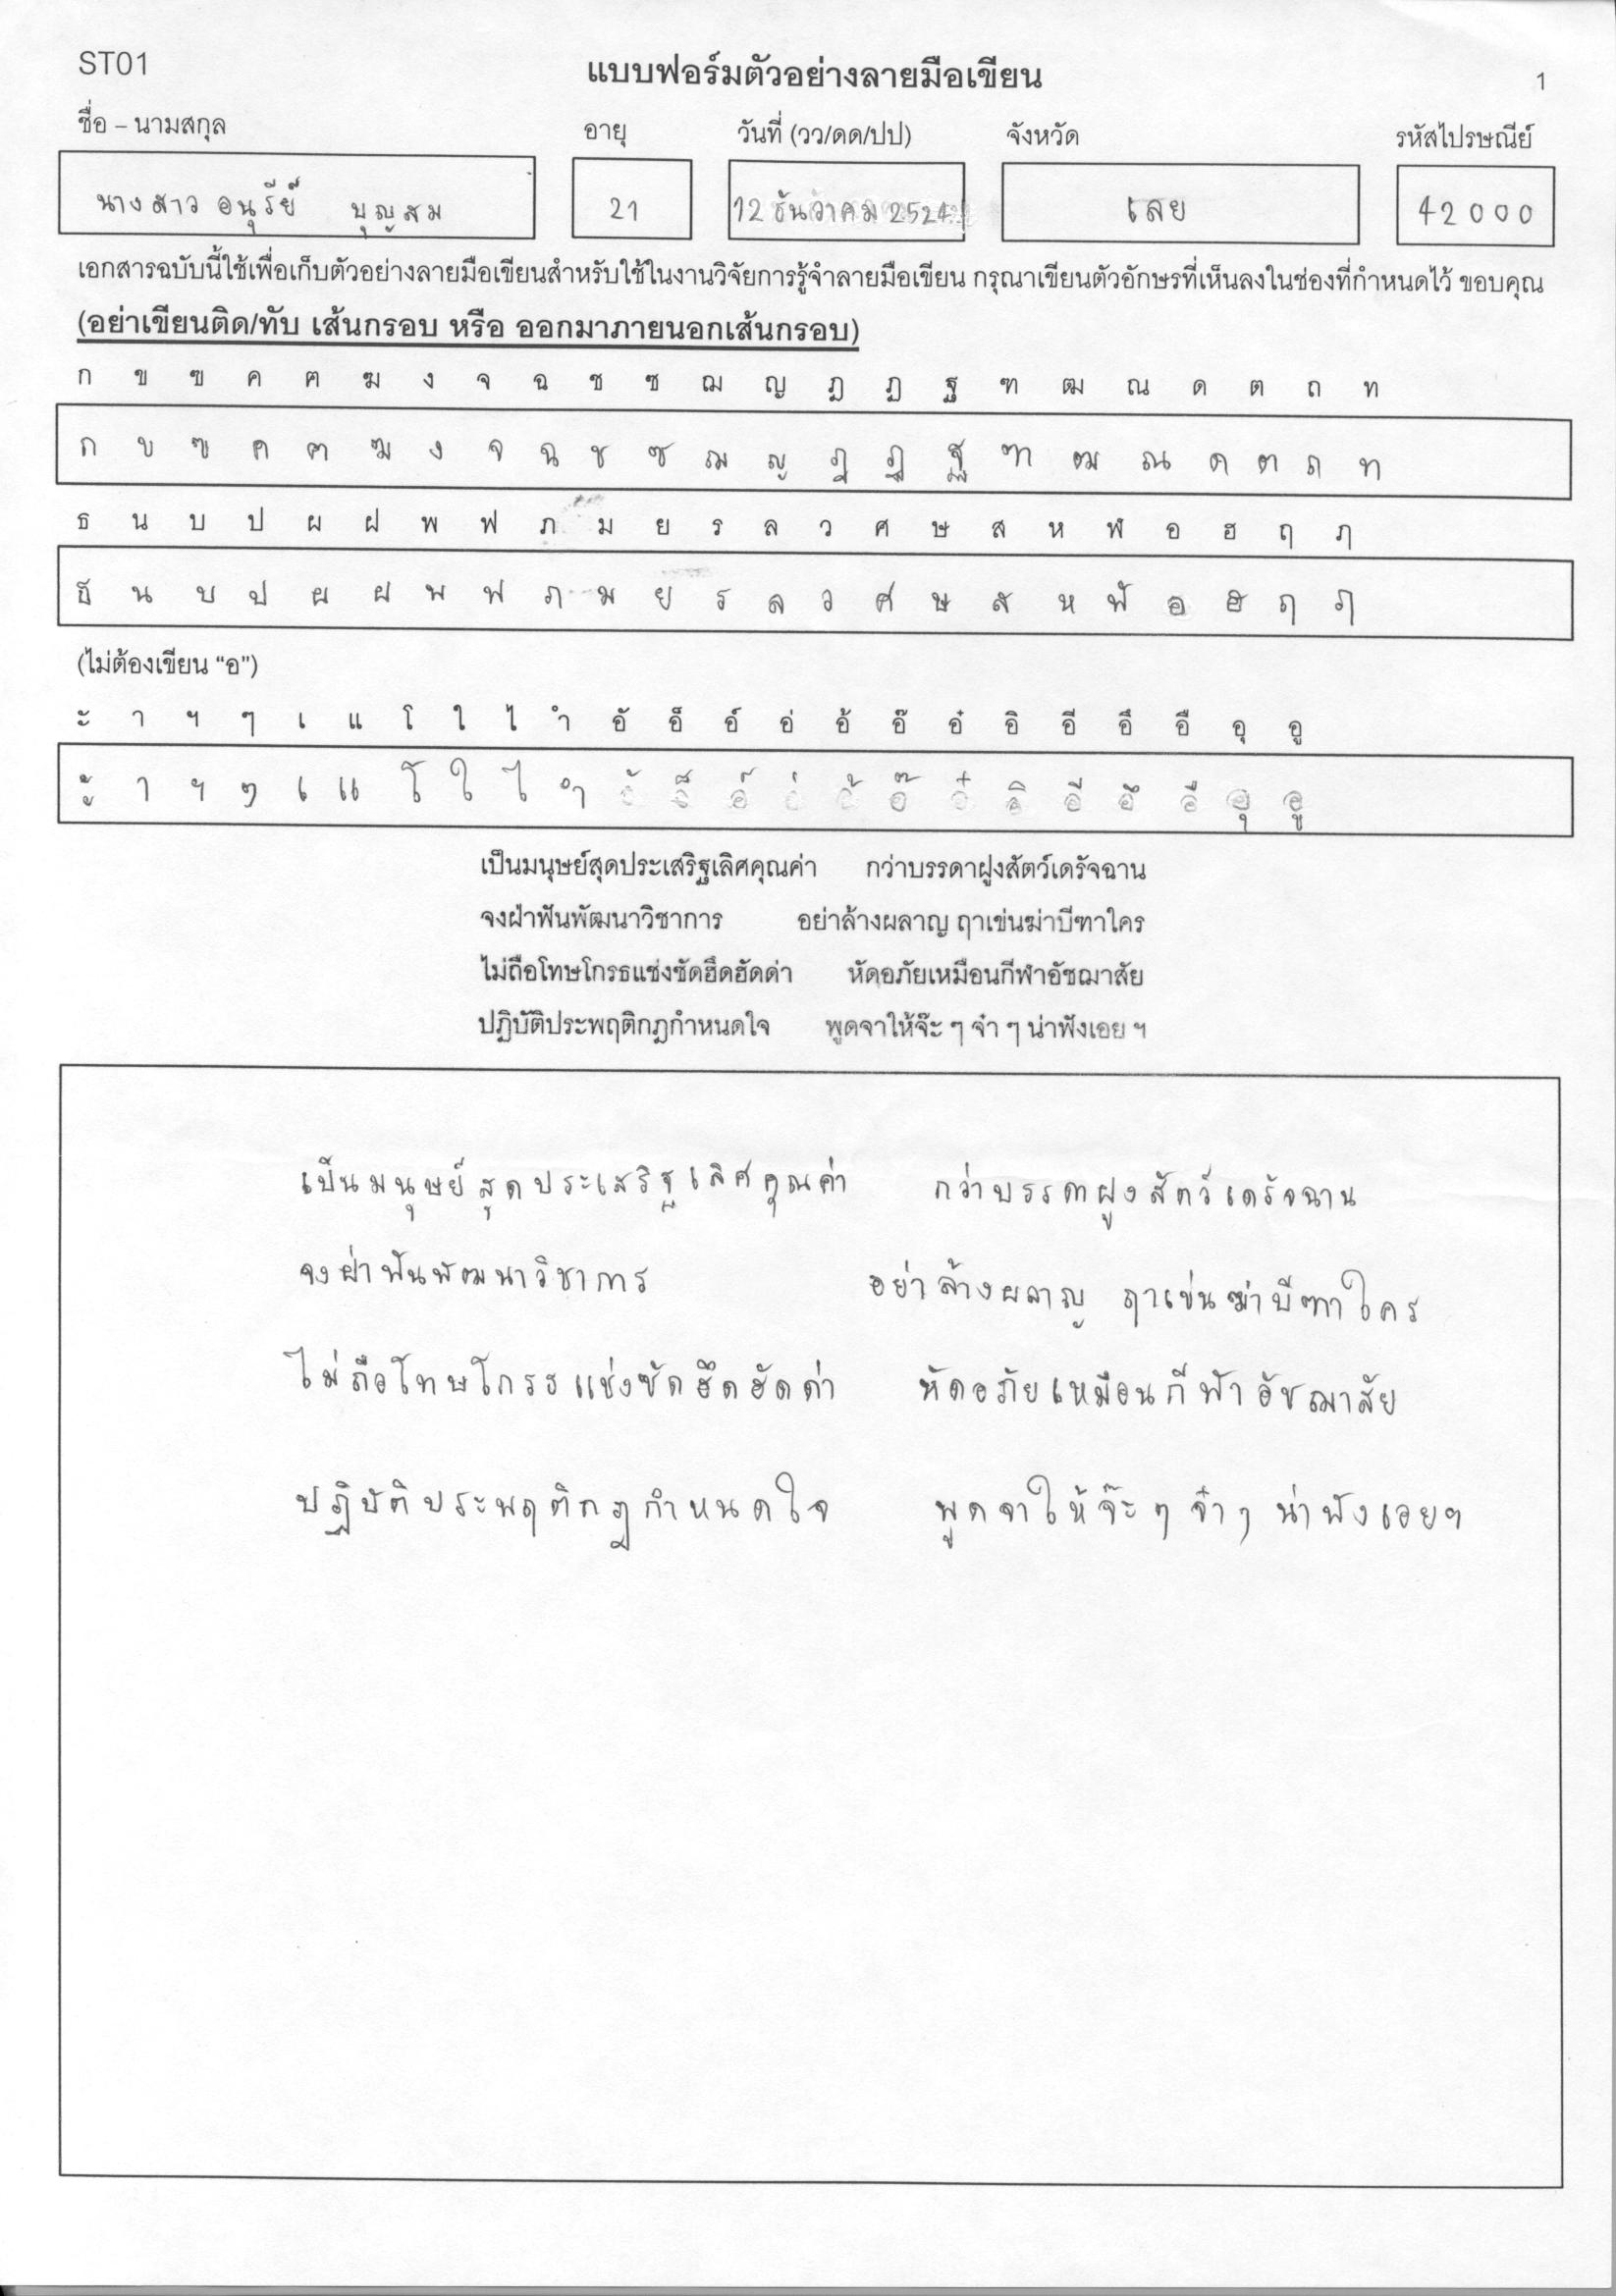 ST01
แบบฟอร์มตัวอย่างลายมือเขียน
1
ชื่อ – นามสกุล อายุ วันที่ (วว/ดด/ปป) จังหวัด รหัสไปรษณีย์
นางสาว อนุรีย์ บุญสม 21 12 ธันวาคม 2524 เลย 42000
เอกสารฉบับนี้ใช้เพื่อเก็บตัวอย่างลายมือเขียนสำหรับใช้ในงานวิจัยการรู้จำลายมือเขียน กรุณาเขียนตัวอักษรที่เห็นลงในช่องที่กำหนดไว้ ขอบคุณ
(อย่าเขียนติด/ทับ เส้นกรอบ หรือ ออกมาภายนอกเส้นกรอบ)
ก ข ฃ ค ฅ ฆ ง จ ฉ ช ซ ฌ ญ ฎ ฏ ฐ ฑ ฒ ณ ด ต ถ ท
ก ข ฃ ค ฅ ฆ ง จ ฉ ช ซ ฌ ญ ฎ ฏ ฐ ฑ ฒ ณ ด ต ถ ท
ธ น บ ป ผ ฝ พ ฟ ภ ม ย ร ล ว ศ ษ ส ห ฬ อ ฮ ฤ ฦ
ธ น บ ป ผ ฝ พ ฟ ภ ม ย ร ล ว ศ ษ ส ห ฬ อ ฮ ฤ ฦ
(ไม่ต้องเขียน “อ”)
ะ า ฯ ๆ เ แ โ ใ ไ ำ อั อ็ อ์ อ่ อ้ อ๊ อ๋ อิ อี อึ อื อุ อู
ะ า ฯ ๆ เ แ โ ใ ไ ำ อั อ็ อ์ อ่ อ้ อ๊ อ๋ อิ อี อึ อื อุ อู
เป็นมนุษย์สุดประเสริฐเลิศคุณค่า กว่าบรรดาฝูงสัตว์เดรัจฉาน
จงฝ่าฟันพัฒนาวิชาการ อย่าล้างผลาญ ฤาเข่นฆ่าบีฑาใคร
ไม่ถือโทษโกรธแช่งซัดฮึดฮัดด่า หัดอภัยเหมือนกีฬาอัชฌาสัย
ปฏิบัติประพฤติกฎกำหนดใจ พูดจาให้จ๊ะ ๆ จ๋า ๆ น่าฟังเอย ฯ
เป็นมนุษย์สุดประเสริฐเลิศคุณค่า กว่าบรรดาฝูงสัตว์เดรัจฉาน
จงฝ่าฟันพัฒนาวิชาการ อย่าล้างผลาญ ฤาเข่นฆ่าบีฑาใคร
ไม่ถือโทษโกรธแช่งซัดฮึดฮัดด่า หัดอภัยเหมือนกีฬาอัชฌาสัย
ปฏิบัติประพฤติกฎกำหนดใจ พูดจาให้จ๊ะ ๆ จ๋า ๆ น่าฟังเอยฯ